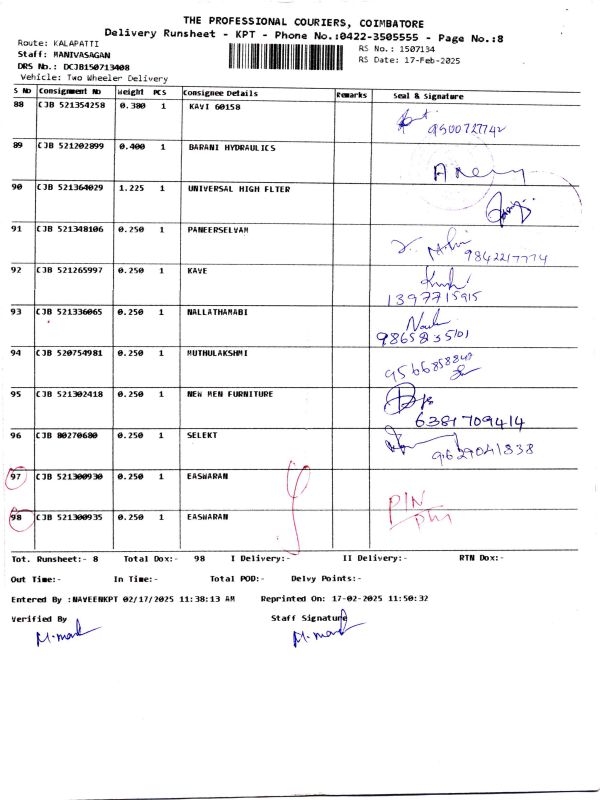 THE PROFESSIONAL COURIERS, COIMBATORE
Delivery Runsheet - KPT - Phone No.:0422-3505555 - Page No.:8
Route: KALAPATTI
RS No.: 1507134
Staff: MANIVASAGAN
RS Date: 17-Feb-2025
DRS No.: DCJB150713408
Vehicle: Two Wheeler Delivery
S No Consignment No Weight PCS Consignee Details Remarks Seal & Signature
88 CJB 521354258 0.380 1 KAVI 60158
9500727742
89 CJB 521202899 0.400 1 BARANI HYDRAULICS
90 CJB 521364029 1.225 1 UNIVERSAL HIGH FLTER
91 CJB 521348106 0.250 1 PANEERSELVAM
9842217774
92 CJB 521265997 0.250 1 KAVE
1397715915
93 CJB 521336065 0.250 1 NALLATHAMABI
9865835101
94 CJB 520754981 0.250 1 MUTHULAKSHMI
95 CJB 521302418 0.250 1 NEW MEN FURNITURE
6381709414
96 CJB 80270680 0.250 1 SELEKT
9629041838
97 CJB 521300930 0.250 1 EASWARAN
98 CJB 521300935 0.250 1 EASWARAN
PIN
Tot. Runsheet:- 8 Total Dox:- 98 I Delivery:- II Delivery:- RTN Dox:-
Out Time:- In Time:- Total POD:- Delvy Points:-
Entered By :NAVEENKPT 02/17/2025 11:38:13 AM Reprinted On: 17-02-2025 11:50:32
Verified By Staff Signature